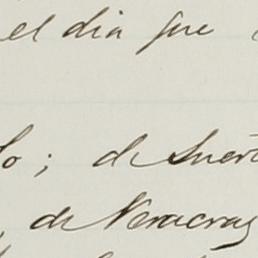 el dia que
lo; de suert
de Veracruz